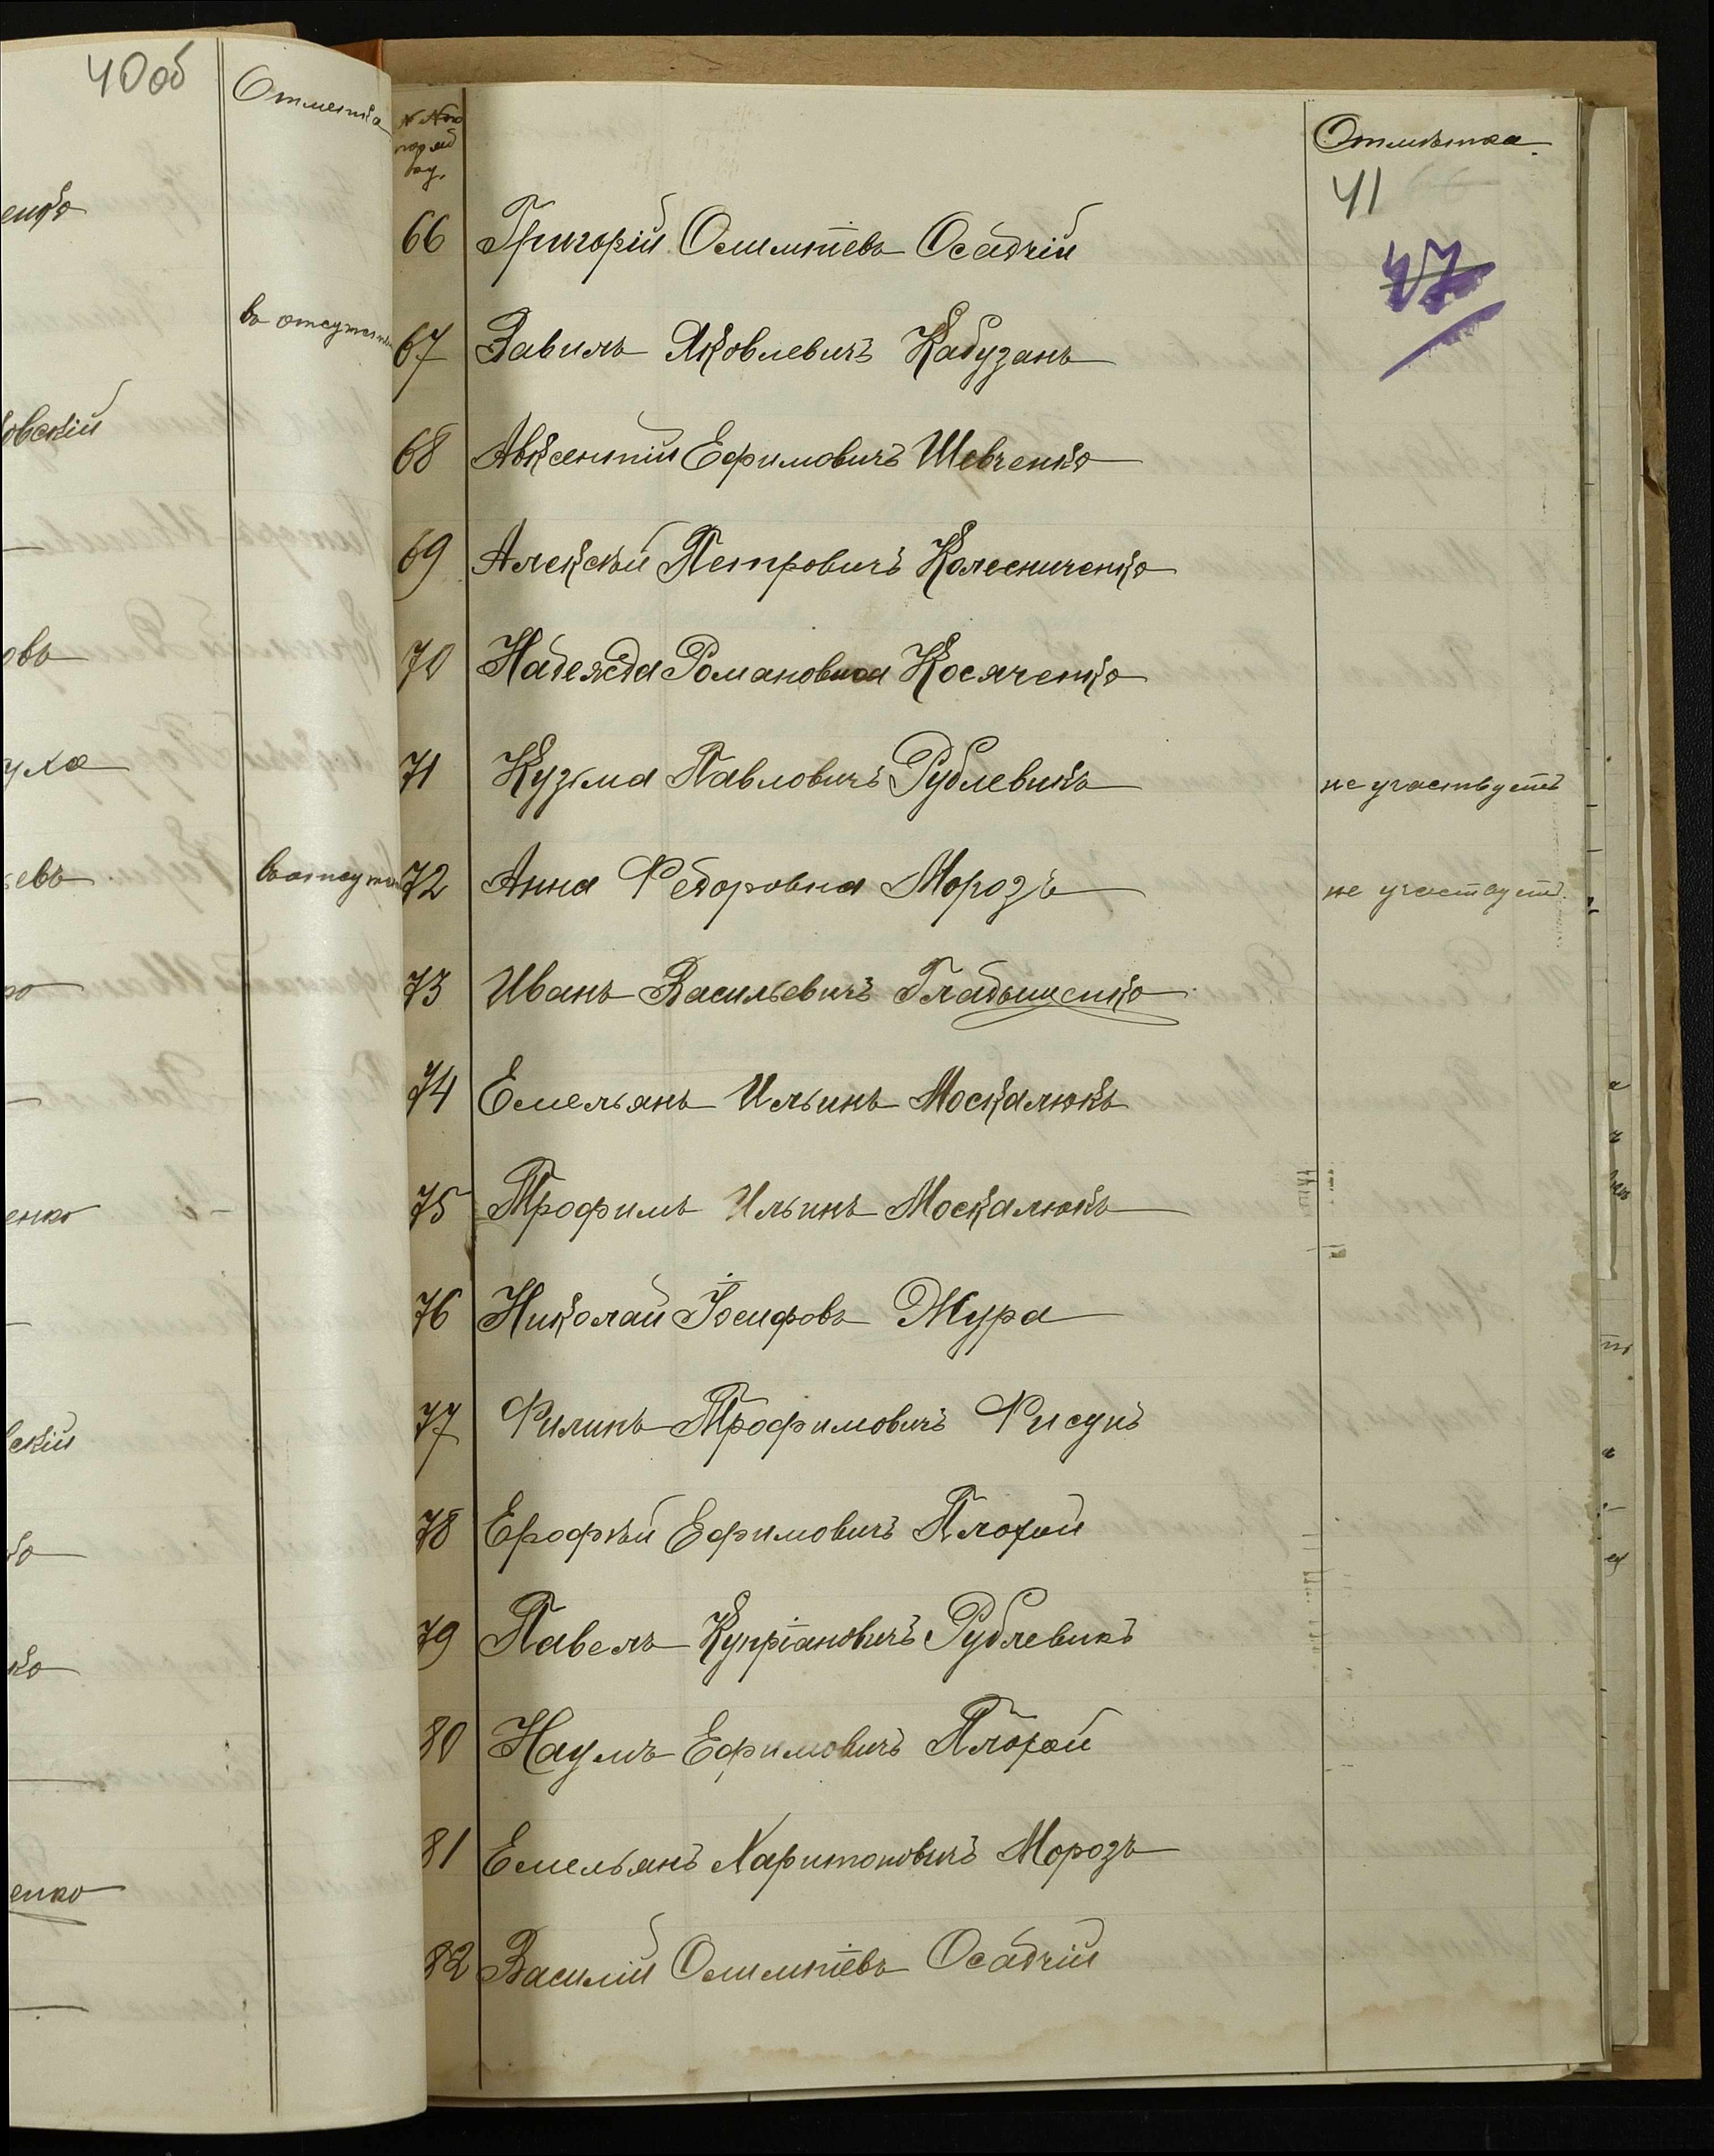 40 об
Отметка
въ отсутствіи
№№ по
поряд
ку.
Отмѣтка.
41
47
66 Григорій Олимпіевъ Осадчій
67 Вавилъ Яковлевичъ Кабузанъ
68 Авксентій Ефимовичъ Шевченко
69 Алексѣй Петровичъ Колесниченко
70 Надежда Романовна Косяченко
71 Кузьма Павловичъ Рублевикъ не участвуетъ
72 Анна Федоровна Морозъ не участвуетъ.
73 Иванъ Васильевичъ Гладышенко
74 Емельянъ Ильинъ Москалюкъ
75 Трофимъ Ильинъ Москалюкъ
76 Николай Іосифовъ Жура
77 Филипъ Трофимовичъ Фисунъ
78 Ерофѣй Ефимовичъ Плохой
79 Павелъ Купріановичъ Рублевикъ
80 Наумъ Ефимовичъ Плохой
81 Емельянъ Харитоновичъ Морозъ
82 Василій Олимпіевъ Осадчій